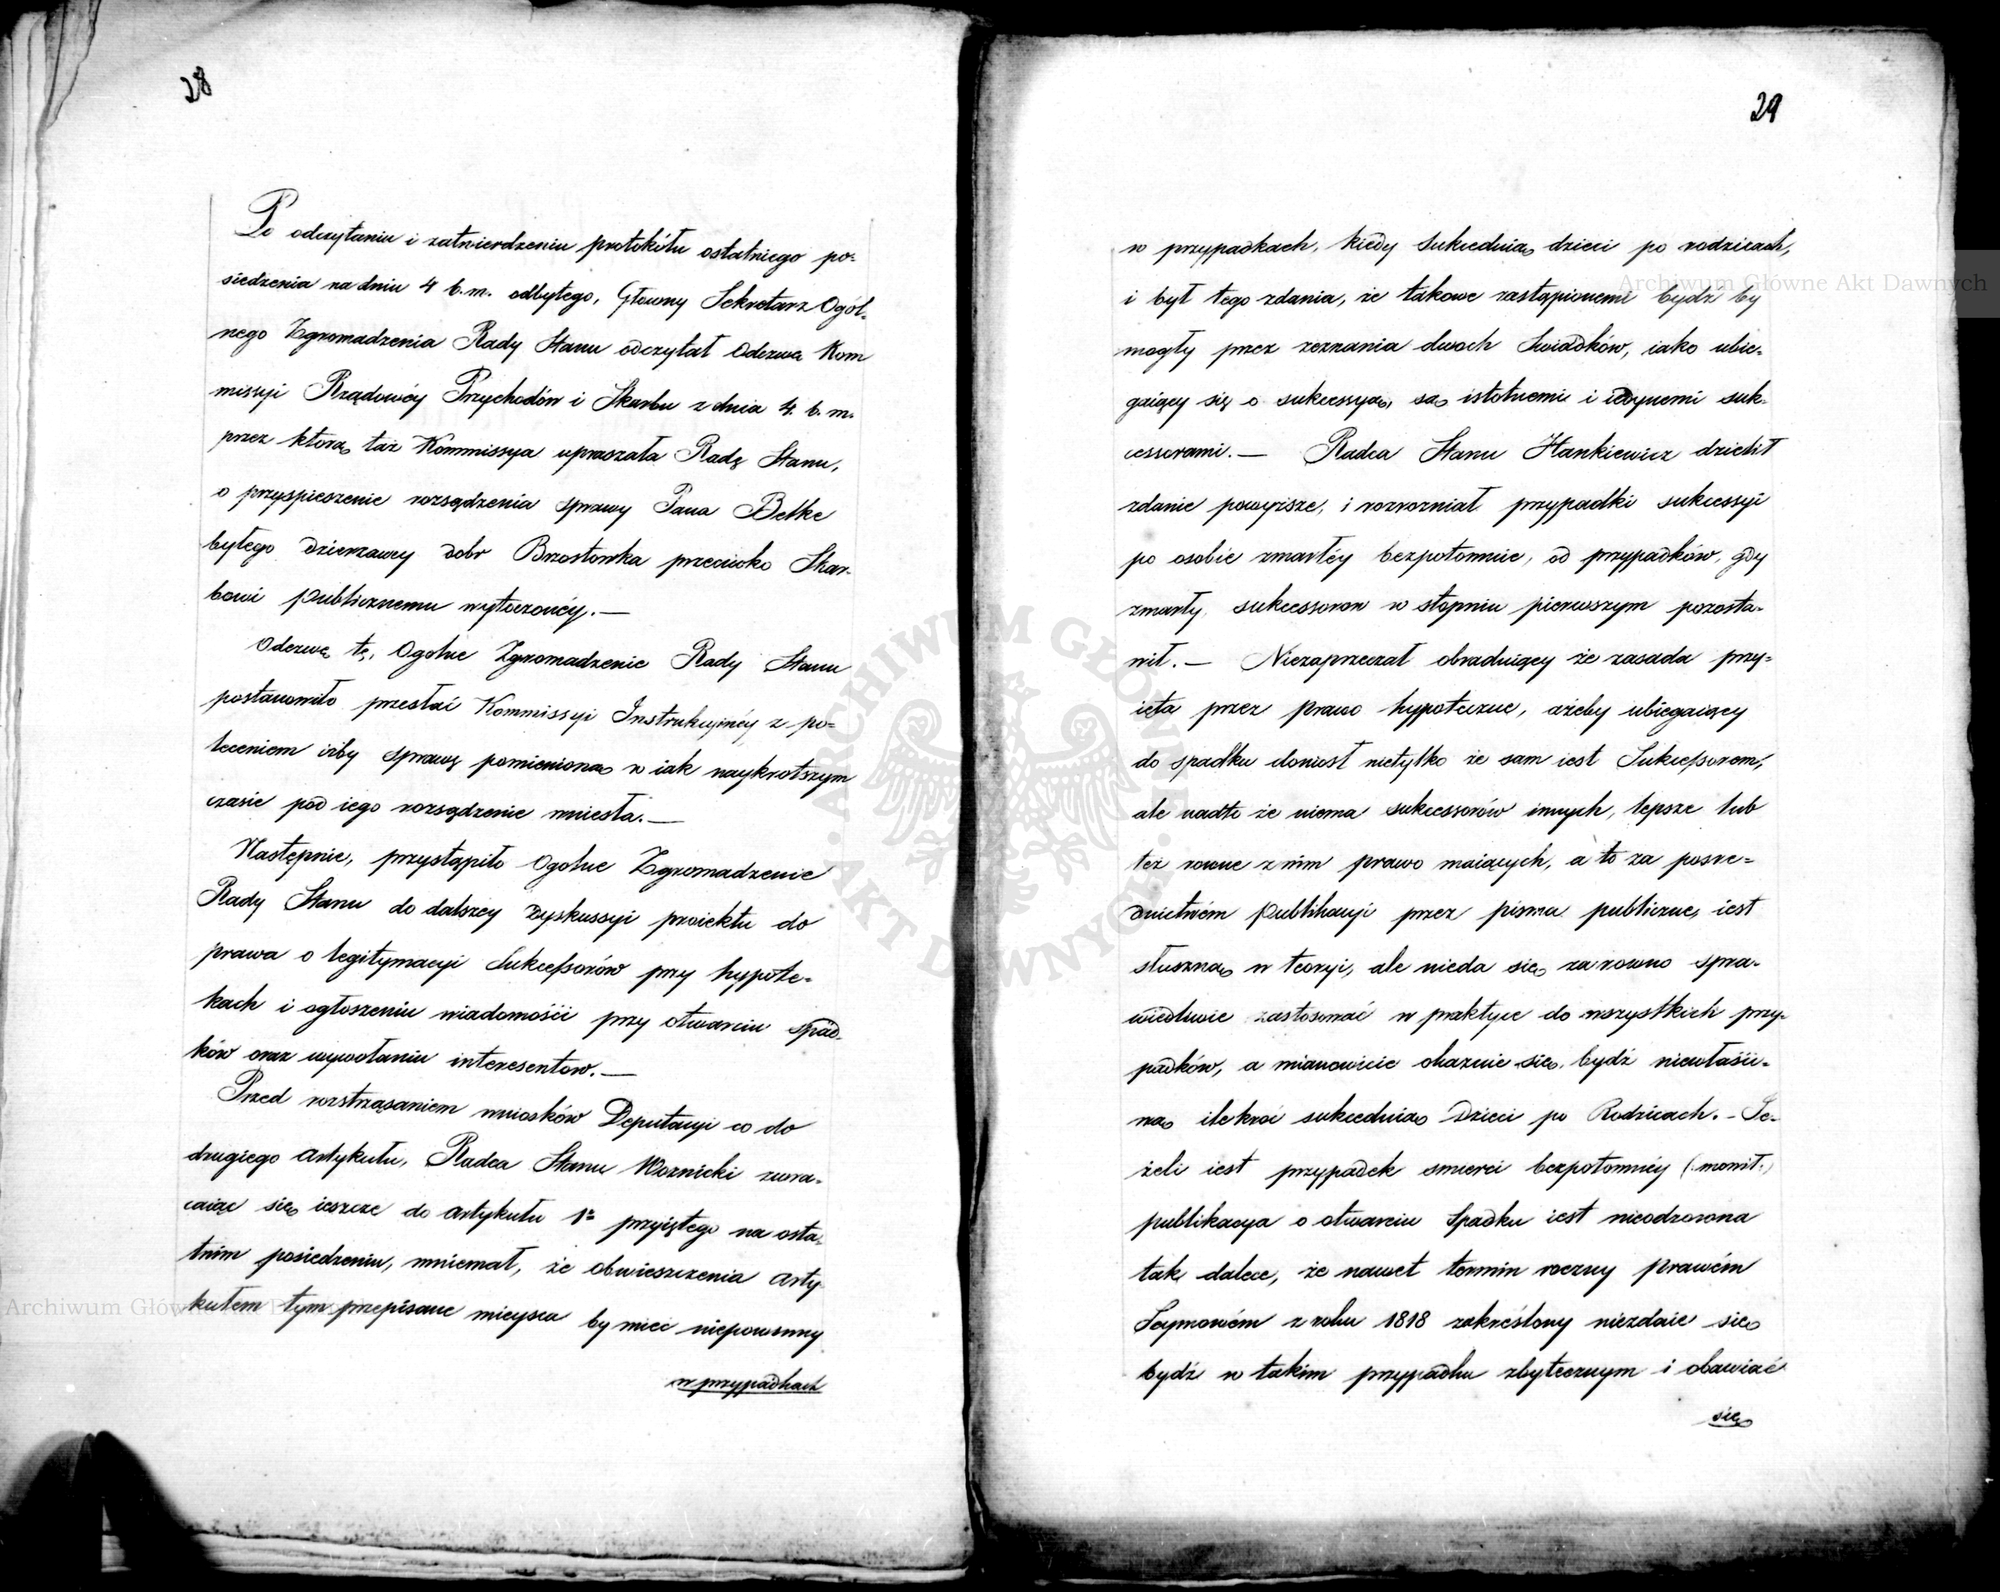 28
Po odczytaniu i zatwierdzeniu protokółu ostatniego po=
siedzenia na dniu 4 b. m. odbytego, Głowny Sekretarz Ogól=
nego Zgromadzenia Rady Stanu odczytał Odezwę Kom
missyi Rządowéy Przychodów i Skarbu z dnia 4. b. m.
przez którą taż Kommissya upraszała Radę Stanu,
o przyspieszenie rozsądzenia sprawy Pana Betke
byłego dzierzawcy dobr Brzostowka przeciwko Skar=
bowi publicznemu wytoczonéy. —
Odezwę tę, Ogolne Zgromadzenie Rady Stanu
postanowiło przesłać Kommissyi Instrukcyinéy z po=
leceniem iżby sprawę pomienioną w iak naykrotszym
czasie pod iego rozsądzenie wniosła. —
Następnie, przystąpiło Ogolne Zgromadzenie
Rady Stanu do dalszey dyskussyi proiektu do
prawa o legitymacyi Sukcessorów przy hypote=
kach i ogłoszeniu wiadomości przy otwarciu spad=
ków oraz wywołaniu interesentow. —
Przed rozstrząsaniem wniosków Deputacyi co do
drugiego artykułu, Radca Stanu Woznicki zwra=
caiąc się ieszcze do artykułu 1º przyiętego na osta=
tnim posiedzeniu, mniemał, że obwieszczenia arty=
kułem tym przepisane mieysca by miec niepowinny
w przypadkach
29
w przypadkach, kiedy sukcedują dzieci po rodzicach,
i był tego zdania, że takowe zastąpionemi bydź by
mogły przez zeznania dwoch Swiadków, iako ubie=
gaiący się o sukcessyą, są istotnemi i iedynemi suk=
cessorami. — Radca Stanu Hankiewicz dzielił
zdanie powyższe, i rozrozniał przypadki sukcessyi
po osobie zmarłéy bezpotomnie, od przypadków, gdy
zmarły sukcessorow w stopniu pierwszym pozosta=
wił. — Niezaprzeczał obraduiący że zasada przy=
ięta przez prawo hypoteczne, ażeby ubiegaiący
do spadku doniosł nietylko że sam iest Sukcessorem,
ale nadto że niema sukcessorów innych, lepsze lub
też rowne z nim prawo maiących, a to za posre=
dnictwém publikacyi przez pisma publiczne, iest
słuszną w teoryi, ale nieda się zarowno spra=
wiedliwie zastosować w praktyce do wszystkich przy=
padków, a mianowicie okazuie się bydź niewłaści=
wą ilekroć sukcedują Dzieci po Rodzicach. — Je=
żeli iest przypadek smierci bezpotomnéy (: mowił :)
publikacya o otwarciu Spadku iest nieodzowna
tak dalece, że nawet termin roczny prawém
Seymowém z roku 1818 zakréslony niezdaie się
bydź w takim przypadku zbytecznym i obawiać
się
Archiwum Główne Akt Dawnych
Archiwum Główne
ARCHIWUM GŁÓWNE AKT DAWNYCH